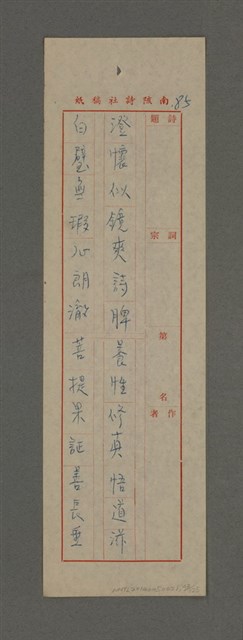 南陔詩社稿紙
85
詩題
詞宗
第 名
作者
澄懷似鏡爽詩脾養性修真悟道滋
白璧無瑕心朗澈菩提果証善長垂